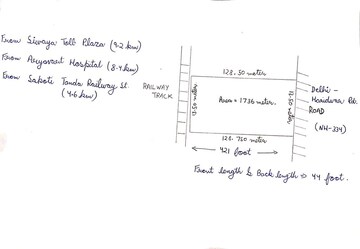 From Sivaya Toll Plaza (9.2 km)
From Aryavart Hospital (8.4 km)
From Sakoti Tanda Railway St.
(4.6 km)
128.50 meter
RAILWAY
TRACK
13.50 meter
Area = 1736 meter.
13.50 meter
Delhi -
Haridwar Rd.
ROAD
(NH-334)
128.750 meter
421 foot
Front length & Back length => 44 foot.